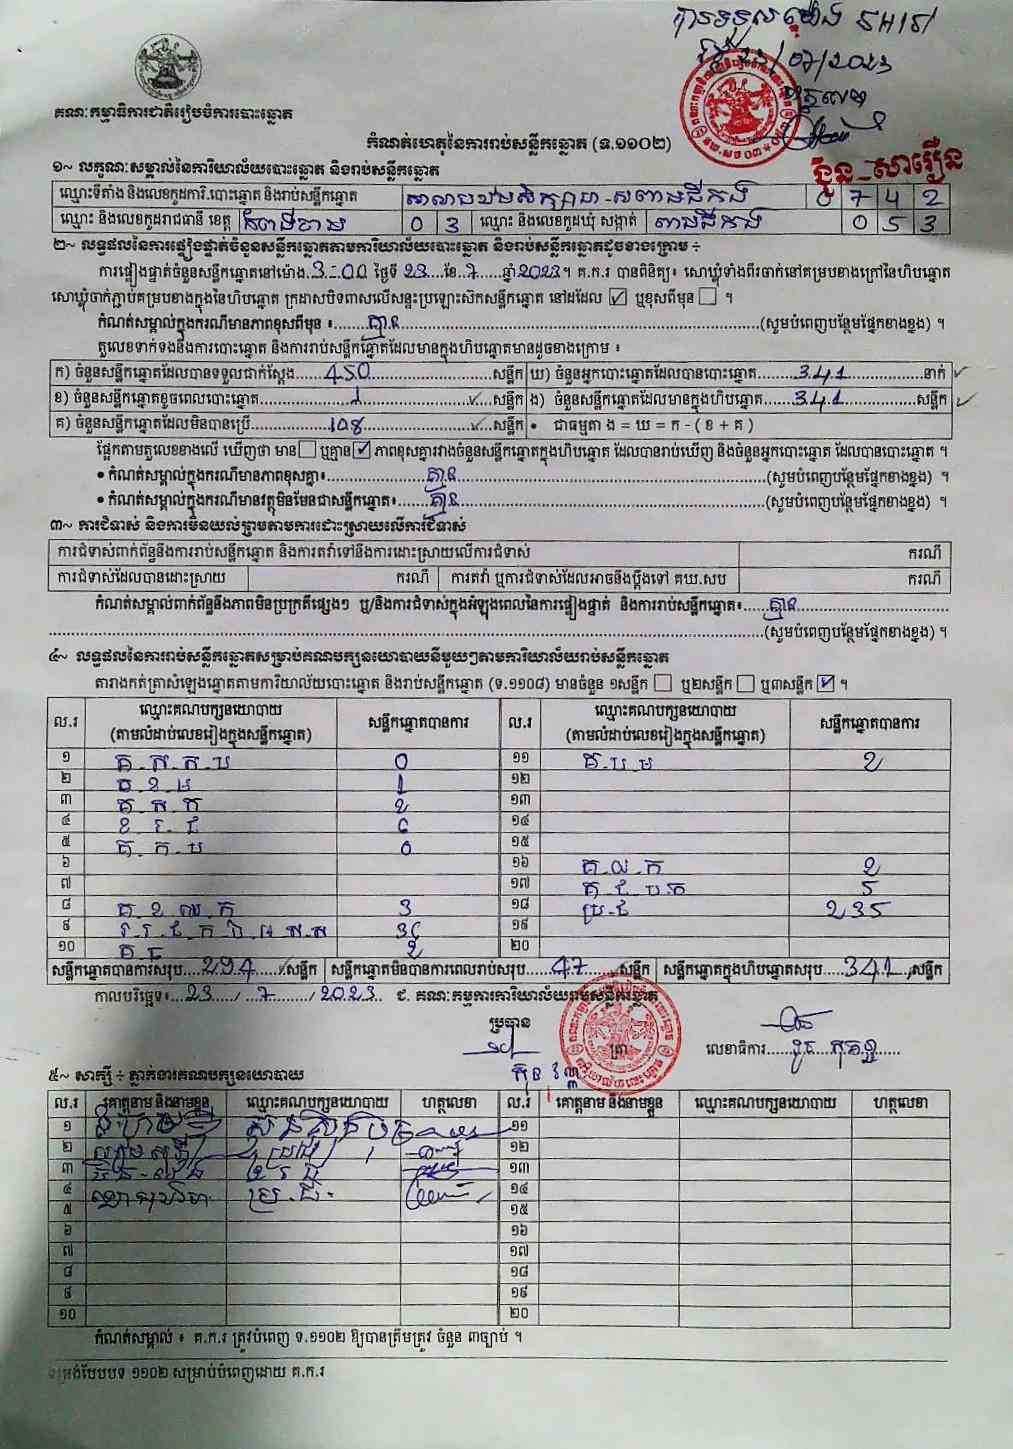 គណៈកម្មាធិការជាតិរៀបចំការបោះឆ្នោត
កំណត់ហេតុនៃការរាប់សន្លឹកឆ្នោត (ទ.១១០២)
ជួន សារឿន
១~ លក្ខណៈសម្គាល់នៃការិយាល័យបោះឆ្នោត និងរាប់សន្លឹកឆ្នោត
ឈ្មោះទីតាំង និងលេខកូដការិ.បោះឆ្នោត និងរាប់សន្លឹកឆ្នោត 0 7 4 2
ឈ្មោះ និងលេខកូដរាជធានី ខេត្ត កំពង់ចាម 0 3 ឈ្មោះ និងលេខកូដឃុំ សង្កាត់ 0 5 3
២~ លទ្ធផលនៃការផ្ទៀងផ្ទាត់ចំនួនសន្លឹកឆ្នោតតាមការិយាល័យបោះឆ្នោត និងរាប់សន្លឹកឆ្នោតដូចខាងក្រោម ÷
ការផ្ទៀងផ្ទាត់ចំនួនសន្លឹកឆ្នោតនៅម៉ោង 3-00 ថ្ងៃទី 23 ខែ 7 ឆ្នាំ 2023 ។ គ.ក.រ បានពិនិត្យ៖ សោឃ្លុំទាំងពីរចាក់នៅគម្របខាងក្រៅនៃហិបឆ្នោត
សោឃ្លុំចាក់ភ្ជាប់គម្របខាងក្នុងនៃហិបឆ្នោត ក្រដាសបិទពាសលើសន្ទះប្រឡោះស៊កសន្លឹកឆ្នោត នៅដដែល ☑ ឬខុសពីមុន ☐ ។
កំណត់សម្គាល់ក្នុងករណីមានភាពខុសពីមុន ៖ គ្មាន (សូមបំពេញបន្ថែមផ្នែកខាងខ្នង) ។
តួលេខទាក់ទងនឹងការបោះឆ្នោត និងការរាប់សន្លឹកឆ្នោតដែលមានក្នុងហិបឆ្នោតមានដូចខាងក្រោម ៖
ក) ចំនួនសន្លឹកឆ្នោតដែលបានទទួលជាក់ស្តែង 450 សន្លឹក ឃ) ចំនួនអ្នកបោះឆ្នោតដែលបានបោះឆ្នោត 341 នាក់
ខ) ចំនួនសន្លឹកឆ្នោតខូចពេលបោះឆ្នោត 1 សន្លឹក ង) ចំនួនសន្លឹកឆ្នោតដែលមានក្នុងហិបឆ្នោត 341 សន្លឹក
គ) ចំនួនសន្លឹកឆ្នោតដែលមិនបានប្រើ 108 សន្លឹក • ជាធម្មតា ង = ឃ = ក - ( ខ + គ )
ផ្អែកតាមតួលេខខាងលើ ឃើញថា មាន ☐ ឬគ្មាន ☑ ភាពខុសគ្នារវាងចំនួនសន្លឹកឆ្នោតក្នុងហិបឆ្នោត ដែលបានរាប់ឃើញ និងចំនួនអ្នកបោះឆ្នោត ដែលបានបោះឆ្នោត ។
• កំណត់សម្គាល់ក្នុងករណីមានភាពខុសគ្នា៖ គ្មាន (សូមបំពេញបន្ថែមផ្នែកខាងខ្នង) ។
• កំណត់សម្គាល់ក្នុងករណីមានវត្ថុមិនមែនជាសន្លឹកឆ្នោត៖ គ្មាន (សូមបំពេញបន្ថែមផ្នែកខាងខ្នង) ។
៣~ ការជំទាស់ និងការមិនយល់ព្រមតាមការដោះស្រាយលើការជំទាស់
ការជំទាស់ពាក់ព័ន្ធនឹងការរាប់សន្លឹកឆ្នោត និងការតវ៉ាទៅនឹងការដោះស្រាយលើការជំទាស់ ករណី
ការជំទាស់ដែលបានដោះស្រាយ ករណី ការតវ៉ា ឬការជំទាស់ដែលអាចនឹងប្តឹងទៅ គឃ.សប ករណី
កំណត់សម្គាល់ពាក់ព័ន្ធនឹងភាពមិនប្រក្រតីផ្សេងៗ ឬ/និងការជំទាស់ក្នុងអំឡុងពេលនៃការផ្ទៀងផ្ទាត់ និងការរាប់សន្លឹកឆ្នោត៖ គ្មាន
(សូមបំពេញបន្ថែមផ្នែកខាងខ្នង) ។
៤~ លទ្ធផលនៃការរាប់សន្លឹកឆ្នោតសម្រាប់គណបក្សនយោបាយនីមួយៗតាមការិយាល័យរាប់សន្លឹកឆ្នោត
តារាងកត់ត្រាសំឡេងឆ្នោតតាមការិយាល័យបោះឆ្នោត និងរាប់សន្លឹកឆ្នោត (ទ.១១០៨) មានចំនួន ១សន្លឹក ☐ ឬ២សន្លឹក ☐ ឬ៣សន្លឹក ☑ ។
ល.រ ឈ្មោះគណបក្សនយោបាយ (តាមលំដាប់លេខរៀងក្នុងសន្លឹកឆ្នោត) សន្លឹកឆ្នោតបានការ ល.រ ឈ្មោះគណបក្សនយោបាយ (តាមលំដាប់លេខរៀងក្នុងសន្លឹកឆ្នោត) សន្លឹកឆ្នោតបានការ
១ 0 ១១ 2
២ 1 ១២
៣ 2 ១៣
៤ ខ.រ.ជ ១៤
៥ 0 ១៥
៦ ១៦ 2
៧ ១៧ 5
៨ 3 ១៨ ប្រ.ជ 235
៩ ១៩
១០ 2 ២០
សន្លឹកឆ្នោតបានការសរុប 294 សន្លឹក សន្លឹកឆ្នោតមិនបានការពេលរាប់សរុប 47 សន្លឹក សន្លឹកឆ្នោតក្នុងហិបឆ្នោតសរុប 341 សន្លឹក
កាលបរិច្ឆេទ៖ 23 / 7 / 2023 ជ. គណៈកម្មការការិយាល័យរាប់សន្លឹកឆ្នោត
ប្រធាន ត្រា លេខាធិការ
៥~ សាក្សី ÷ ភ្នាក់ងារគណបក្សនយោបាយ
ល.រ គោត្តនាម និងនាមខ្លួន ឈ្មោះគណបក្សនយោបាយ ហត្ថលេខា ល.រ គោត្តនាម និងនាមខ្លួន ឈ្មោះគណបក្សនយោបាយ ហត្ថលេខា
១ ១១
២ ១២
៣ ១៣
៤ ប្រ.ជ ១៤
៥ ១៥
៦ ១៦
៧ ១៧
៨ ១៨
៩ ១៩
១០ ២០
កំណត់សម្គាល់ ៖ គ.ក.រ ត្រូវបំពេញ ទ.១១០២ ឱ្យបានត្រឹមត្រូវ ចំនួន ៣ច្បាប់ ។
ទម្រង់បែបបទ ១១០២ សម្រាប់បំពេញដោយ គ.ក.រ